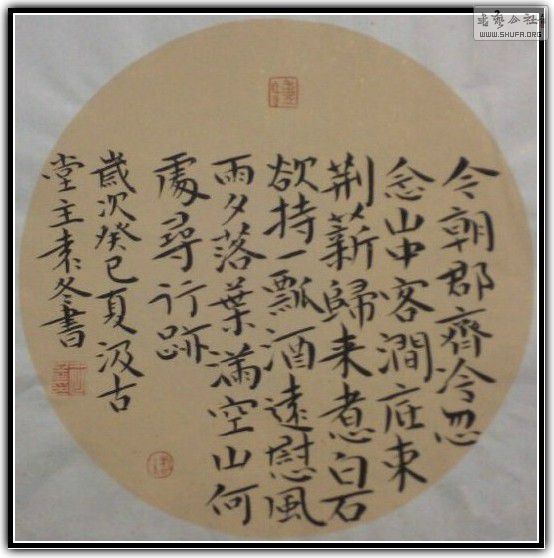 今朝郡齊冷忽
念山中客澗底束
荆薪歸来煮白石
欲持一瓢酒遠慰風
雨夕落葉滿空山何
處尋行跡
歲次癸巳夏汲古
堂主袁冬書
WWW.SHUFA.ORG